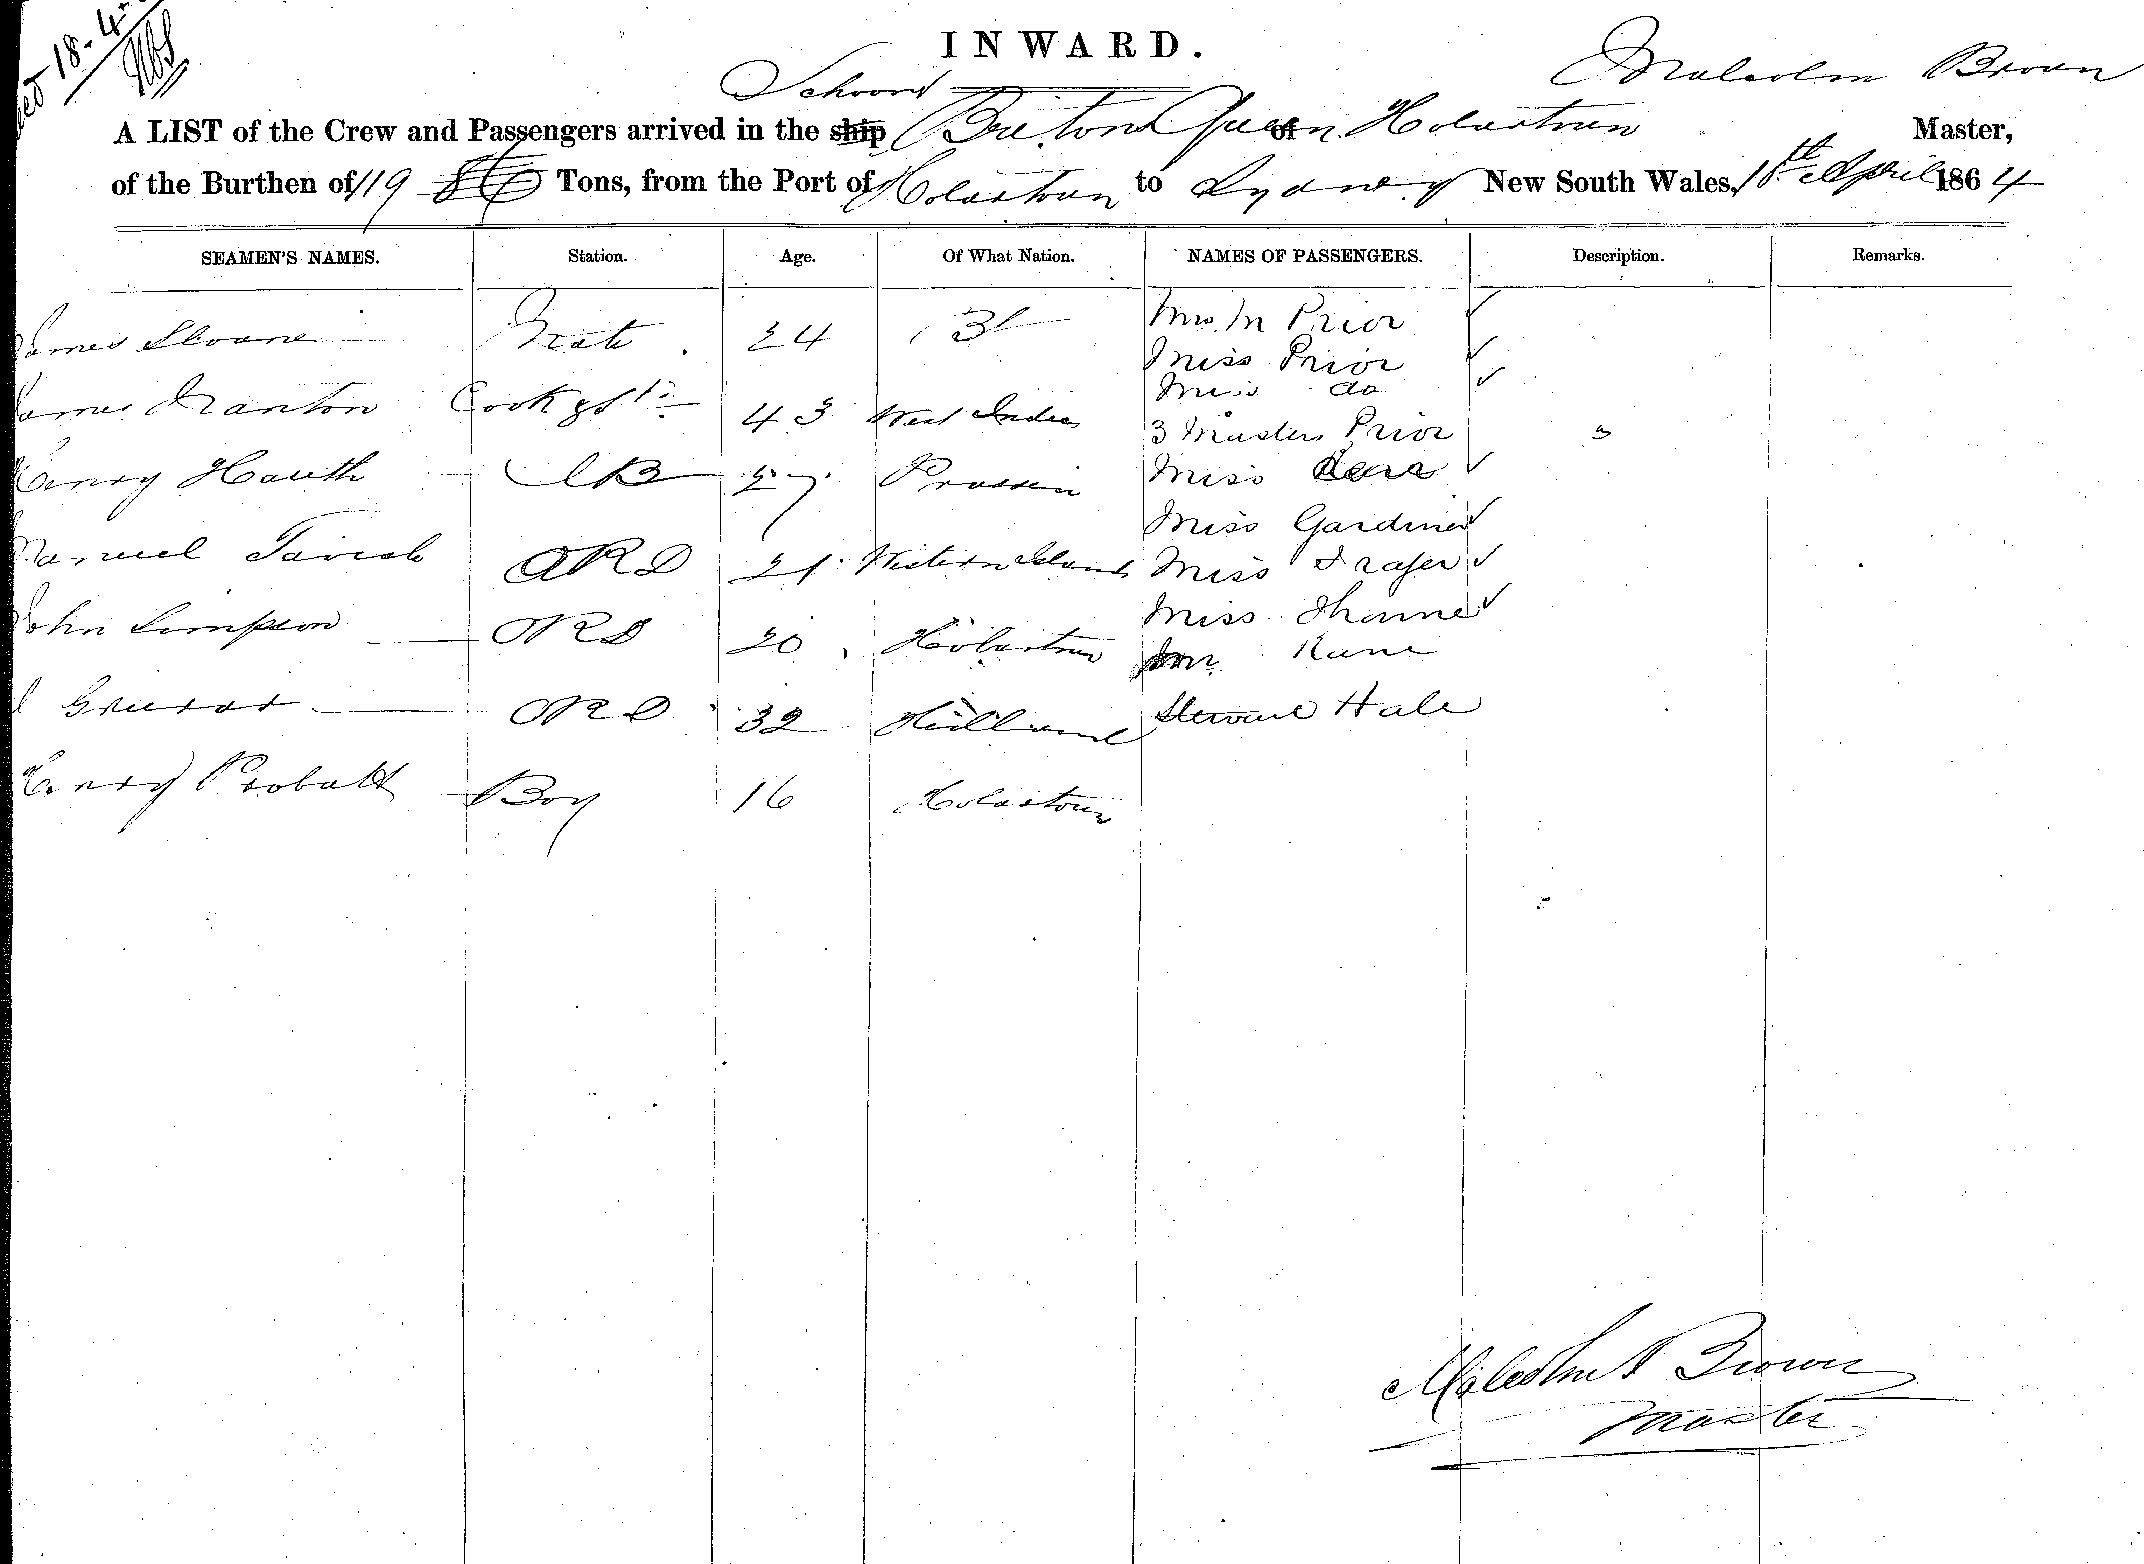 18-4-
INWARD.
Malcolm Brown
A LIST of the Crew and Passengers arrived in the ship Briton Queen of Hobartown Master,
of the Burthen of 119 86 Tons, from the Port of Hobartown to Sydney New South Wales, 18th April 1864
SEAMEN'S NAMES. Station. Age. Of What Nation. NAMES OF PASSENGERS. Description. Remarks.
James Sloane Mate 24 Mrs. M Prior
Miss Prior
Miss do
James Cook & St 43 West Indies 3 Masters Prior 3
Henry AB 27 Prussia Miss
Miss Gardiner
Manuel ORD 21 Western Islands Miss Fraser
John Simpson ORD 20 Hobartown Miss
Mr. Kane
ORD 32 Steward Hale
Henry Probatt Boy 16 Hobartown
Malcolm Brown
Master